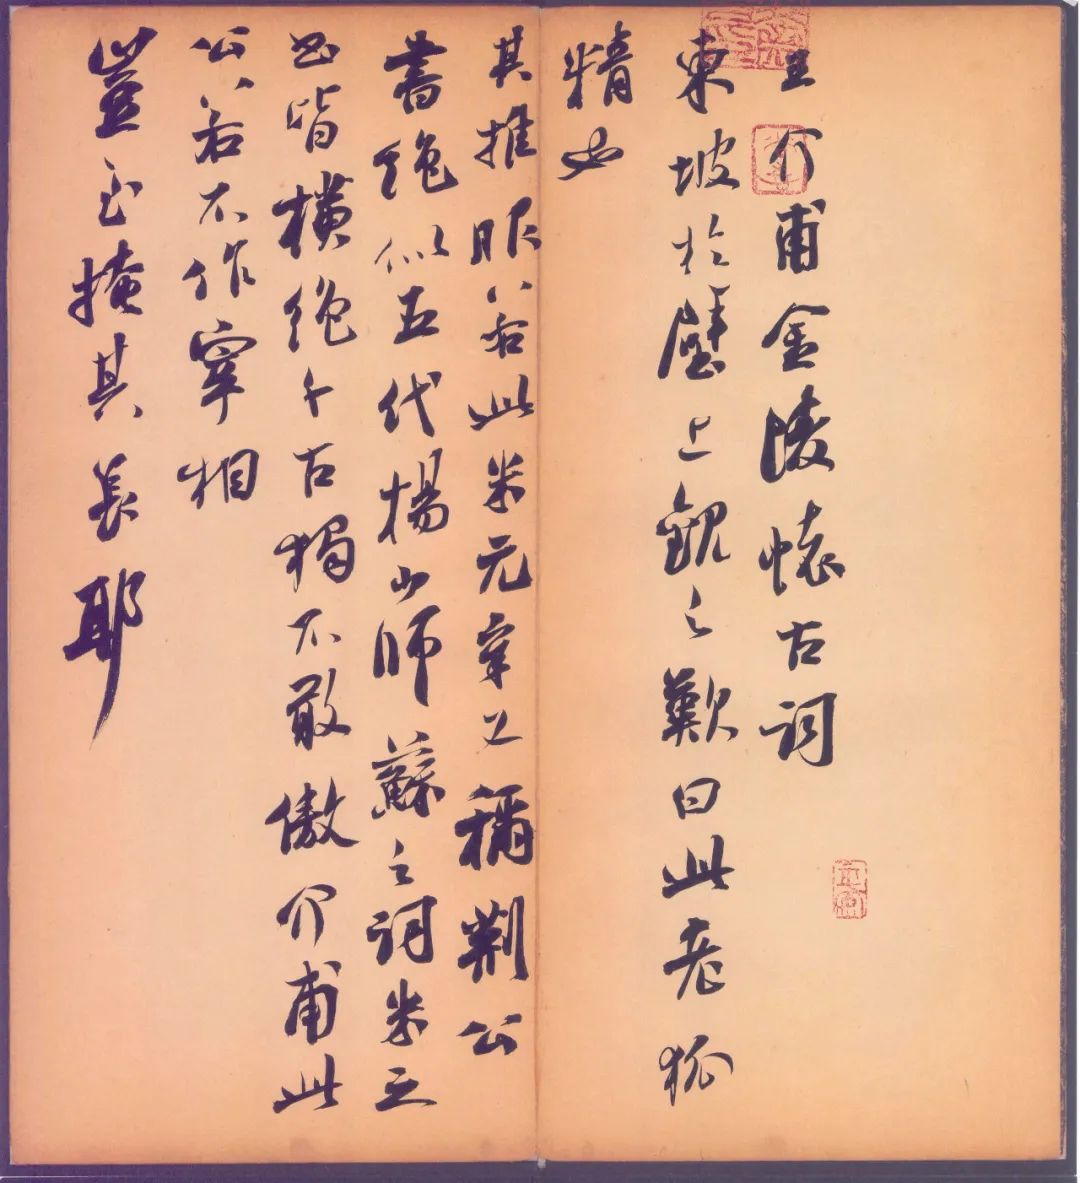 王介甫金陵懷古詞
東坡於壁上觀之歎曰此老狐
精也
其推服若此米元章又稱荆公
書絕似五代楊少師蘇之詞米之
書皆橫絕千古獨不敢傲介甫此
公若不作宰相
豈至掩其長耶